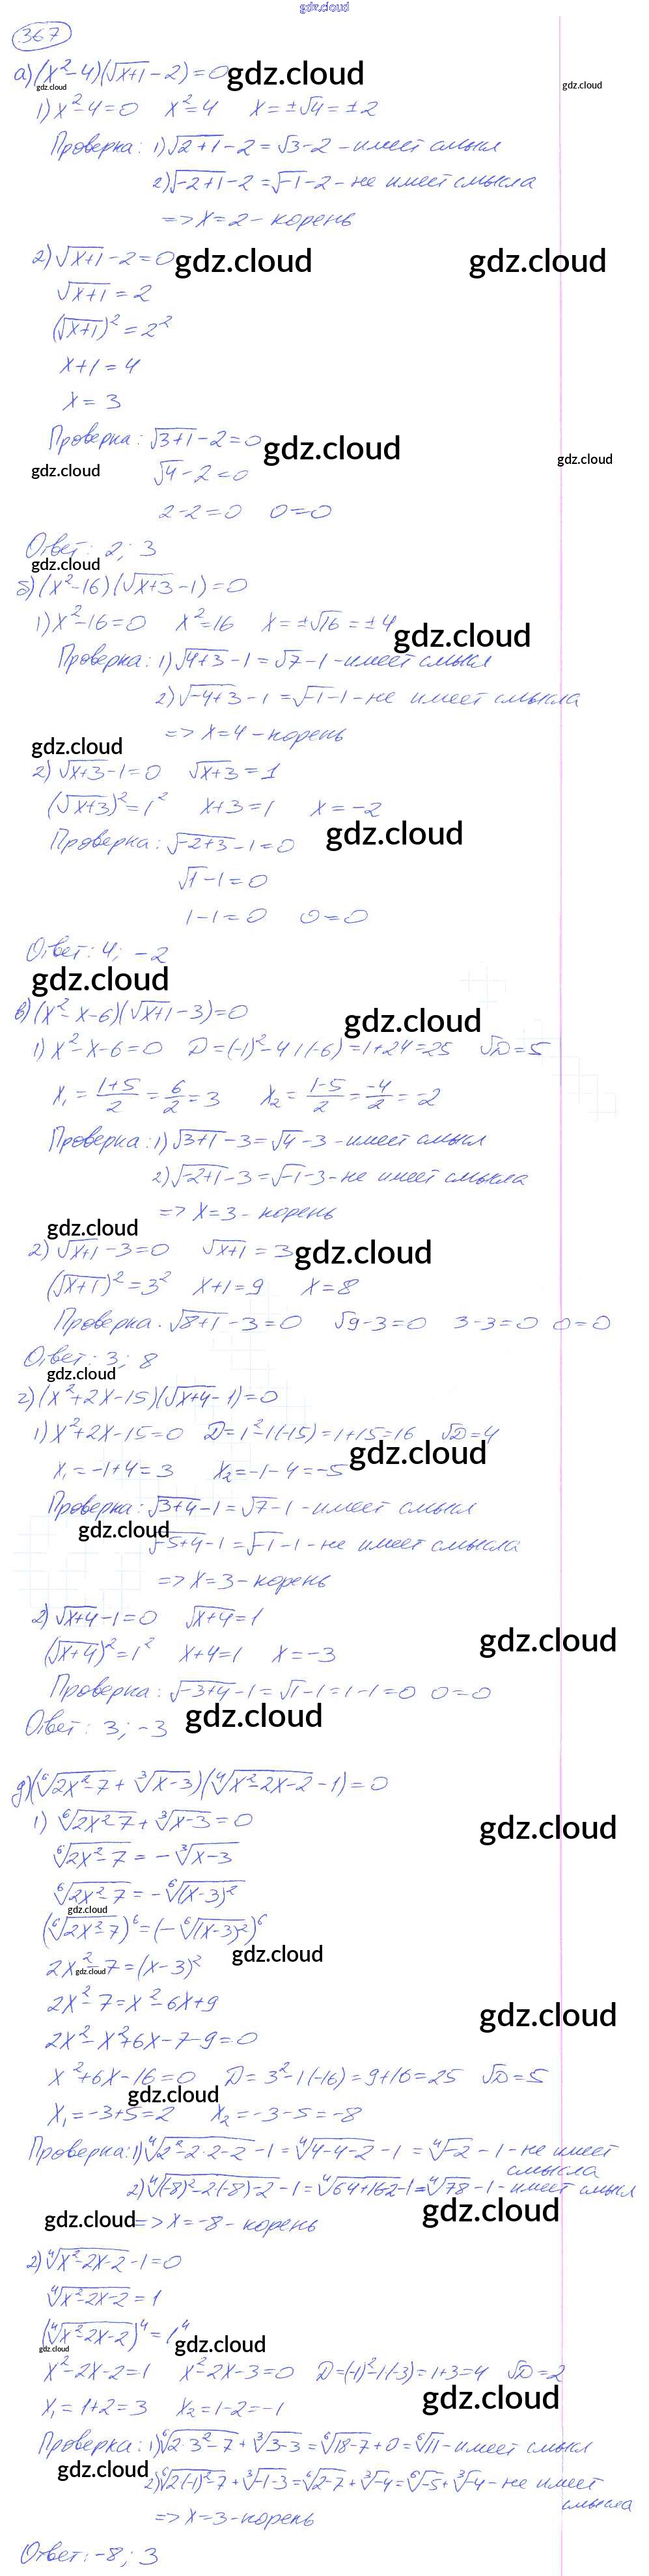 gdz.cloud
367
а) (x²-4)(√x+1 - 2) = 0 gdz.cloud
gdz.cloud
gdz.cloud
1) x²-4=0 x²=4 x=±√4=±2
Проверка: 1) √2+1 - 2 = √3-2 - имеет смысл
2) √-2+1 - 2 = √-1 - 2 - не имеет смысла
=> x=2 - корень
2) √x+1 - 2 = 0 gdz.cloud gdz.cloud
√x+1 = 2
(√x+1)² = 2²
x+1 = 4
x = 3
Проверка: √3+1 - 2 = 0 gdz.cloud
gdz.cloud √4 - 2 = 0 gdz.cloud
2-2=0 0=0
Ответ: 2; 3
gdz.cloud
б) (x²-16)(√x+3 - 1) = 0
1) x²-16=0 x²=16 x=±√16=±4 gdz.cloud
Проверка: 1) √4+3 - 1 = √7 - 1 - имеет смысл
2) √-4+3 - 1 = √-1 - 1 - не имеет смысла
=> x=4 - корень
gdz.cloud
2) √x+3 - 1 = 0 √x+3 = 1
(√x+3)² = 1² x+3=1 x=-2
Проверка: √-2+3 - 1 = 0 gdz.cloud
√1 - 1 = 0
1-1=0 0=0
Ответ: 4; -2
gdz.cloud
в) (x²-x-6)(√x+1 - 3) = 0 gdz.cloud
1) x²-x-6=0 D=(-1)²-4·1·(-6)=1+24=25 √D=5
x₁ = 1+5/2 = 6/2 = 3 x₂ = 1-5/2 = -4/2 = -2
Проверка: 1) √3+1 - 3 = √4 - 3 - имеет смысл
2) √-2+1 - 3 = √-1 - 3 - не имеет смысла
=> x=3 - корень
gdz.cloud
2) √x+1 - 3 = 0 √x+1 = 3 gdz.cloud
(√x+1)² = 3² x+1=9 x=8
Проверка. √8+1 - 3 = 0 √9-3=0 3-3=0 0=0
Ответ: 3; 8
gdz.cloud
г) (x²+2x-15)(√x+4 - 1) = 0
1) x²+2x-15=0 D=1²-1(-15)=1+15=16 √D=4
x₁=-1+4=3 x₂=-1-4=-5 gdz.cloud
Проверка: √3+4 - 1 = √7 - 1 - имеет смысл
gdz.cloud
√-5+4 - 1 = √-1 - 1 - не имеет смысла
=> x=3 - корень
2) √x+4 - 1 = 0 √x+4 = 1 gdz.cloud
(√x+4)² = 1² x+4=1 x=-3
Проверка: √-3+4 - 1 = √1 - 1 = 1-1=0 0=0
Ответ: 3; -3 gdz.cloud
д) (⁶√2x²-7 + ³√x-3)(⁴√x²-2x-2 - 1) = 0
1) ⁶√2x²-7 + ³√x-3 = 0 gdz.cloud
⁶√2x²-7 = -³√x-3
⁶√2x²-7 = -⁶√(x-3)²
gdz.cloud
(⁶√2x²-7)⁶ = (-⁶√(x-3)²)⁶
gdz.cloud
2x²-7=(x-3)²
gdz.cloud
2x²-7=x²-6x+9 gdz.cloud
2x²-x²+6x-7-9=0
x²+6x-16=0 D=3²-1(-16)=9+16=25 √D=5
gdz.cloud
x₁=-3+5=2 x₂=-3-5=-8
Проверка: 1) ⁴√2²-2·2-2 - 1 = ⁴√4-4-2 - 1 = ⁴√-2 - 1 - не имеет
смысла
2) ⁴√(-8)²-2(-8)-2 - 1 = ⁴√64+16-2 - 1 = ⁴√78 - 1 - имеет смысл
gdz.cloud => x=-8 - корень gdz.cloud
2) ⁴√x²-2x-2 - 1 = 0
⁴√x²-2x-2 = 1
(⁴√x²-2x-2)⁴ = 1⁴
gdz.cloud gdz.cloud
x²-2x-2=1 x²-2x-3=0 D=(-1)²-1(-3)=1+3=4 √D=2
x₁=1+2=3 x₂=1-2=-1 gdz.cloud
Проверка: 1) ⁶√2·3²-7 + ³√3-3 = ⁶√18-7 + 0 = ⁶√11 - имеет смысл
gdz.cloud
2) ⁶√2(-1)²-7 + ³√-1-3 = ⁶√2-7 + ³√-4 = ⁶√-5 + ³√-4 - не имеет
смысла
=> x=3 - корень
Ответ: -8; 3